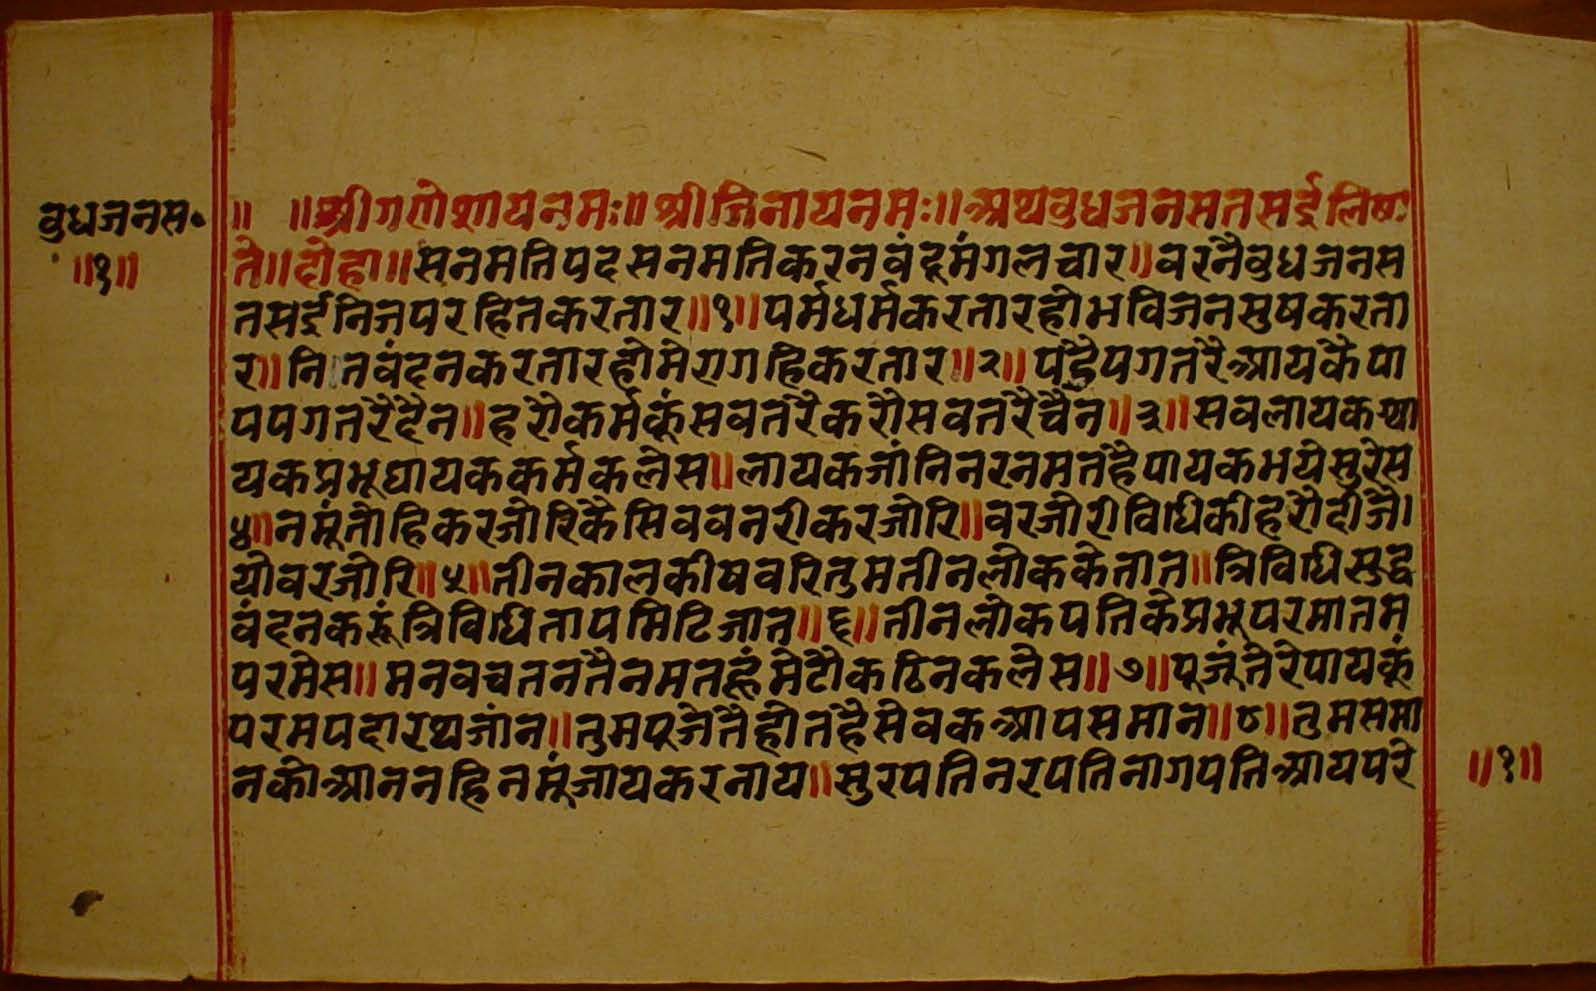 वुधजनस॰
॥१॥
॥ ॥श्रीगणेशायनमः॥ श्रीजिनायनमः॥अथवुधजनसतसई लिष्य
ते॥दोहा॥सनमतिपदसनमतिकरनवंदूमंगलचार॥वरनैवुधजनस
तसईनिजपरहितकरतार॥१॥पर्मधर्मकरतारहौभविजनसुषकरता
र॥नितवंदनकरतारहौमेरागहिकरतार॥२॥पंडैपगतरैआयकैपा
पपगतरैदैन॥हरौकर्मकूंसवतरैकरौसवतरैचैन॥३॥सवलायकथा
यकप्रभूघायककर्मकलेस॥लायकजांनिनरनमतहैपायकभयेसुरेस
४॥नमूंतोहिकरजोरिकैसिववनरीकरजोरि॥वरजोरीविधिकीहरौदीजै।
योवरजोरि॥५॥तीनकालकीषवरितुमतीनलोककेतात॥त्रिविधिसुद्ध
वंदनकरूंत्रिविधितापमिटिजात॥६॥तीनलोकपतिकेप्रभूपरमातम
परमेस॥मनवचतनतैनमतहूंमेटौकठिनकलेस॥७॥पूजूंतेरेपायकूं
परमपदारथजांन॥तुमपूजेतैहोतहैसेवकआपसमान॥८॥तुमसमा
नकोआननहिनमूंजायकरनाय॥सुरपतिनरपतिनागपतिआयपरे
॥१॥